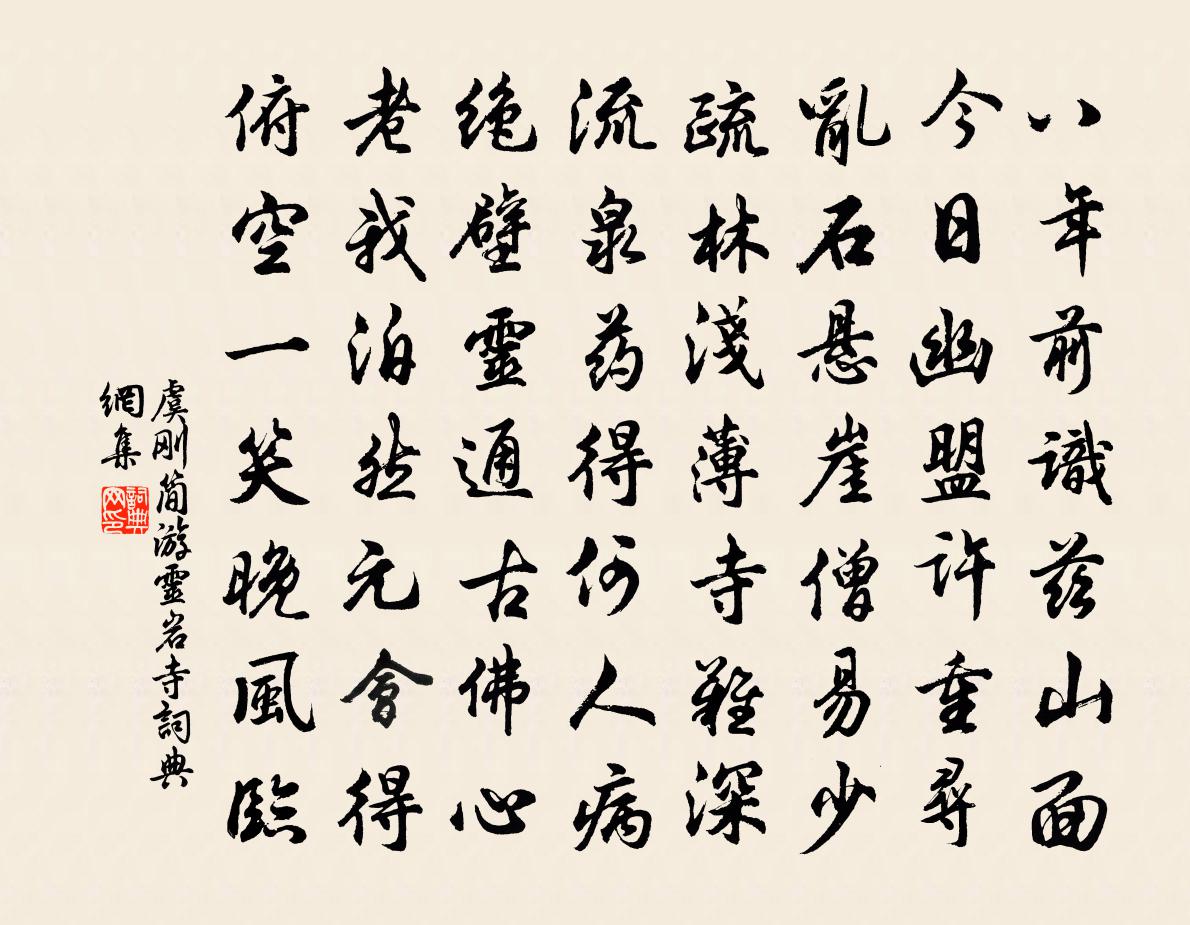 八年前識茲山面
今日幽盟許重尋
亂石悬崖僧易少
疏林淺薄寺難深
流泉药得何人病
绝壁靈通古佛心
老我泊然元會得
俯空一笑晚風臨
虞刚简游靈岩寺詞典
網集
詞典网印